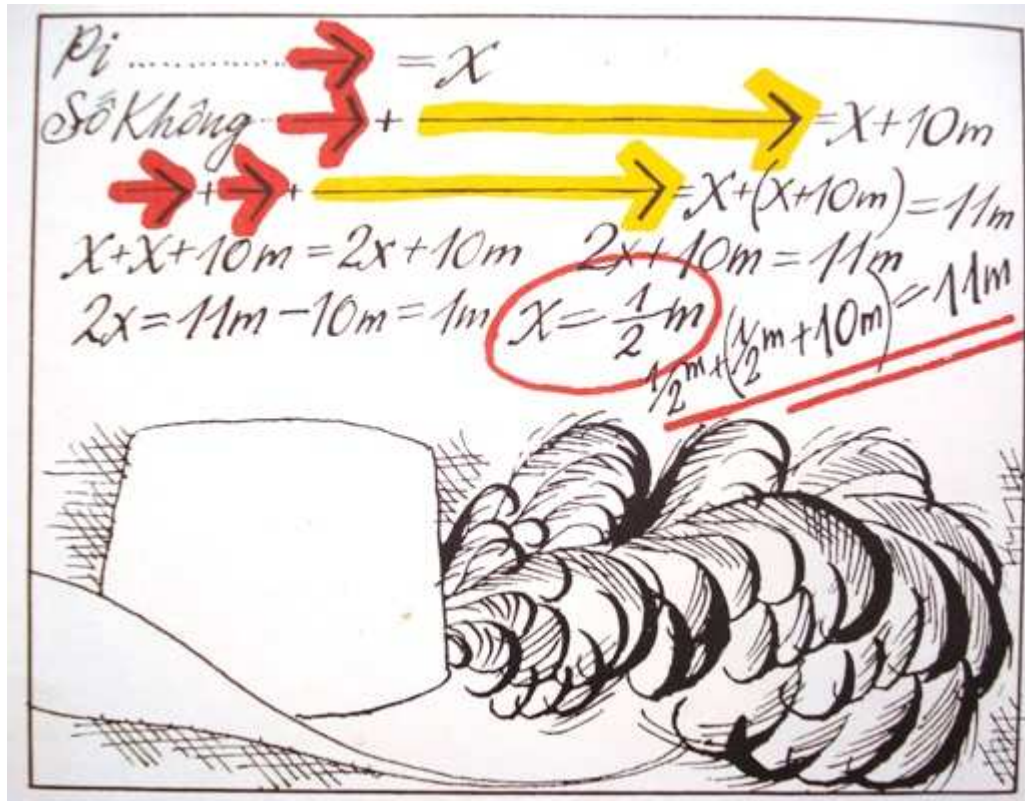 Pi .............. = X
Số Không ... + = X + 10m
+ + = X + (X + 10m) = 11m
X + X + 10m = 2x + 10m 2x + 10m = 11m
2x = 11m - 10m = 1m X = 1/2 m
1/2 m + (1/2 m + 10m) = 11m